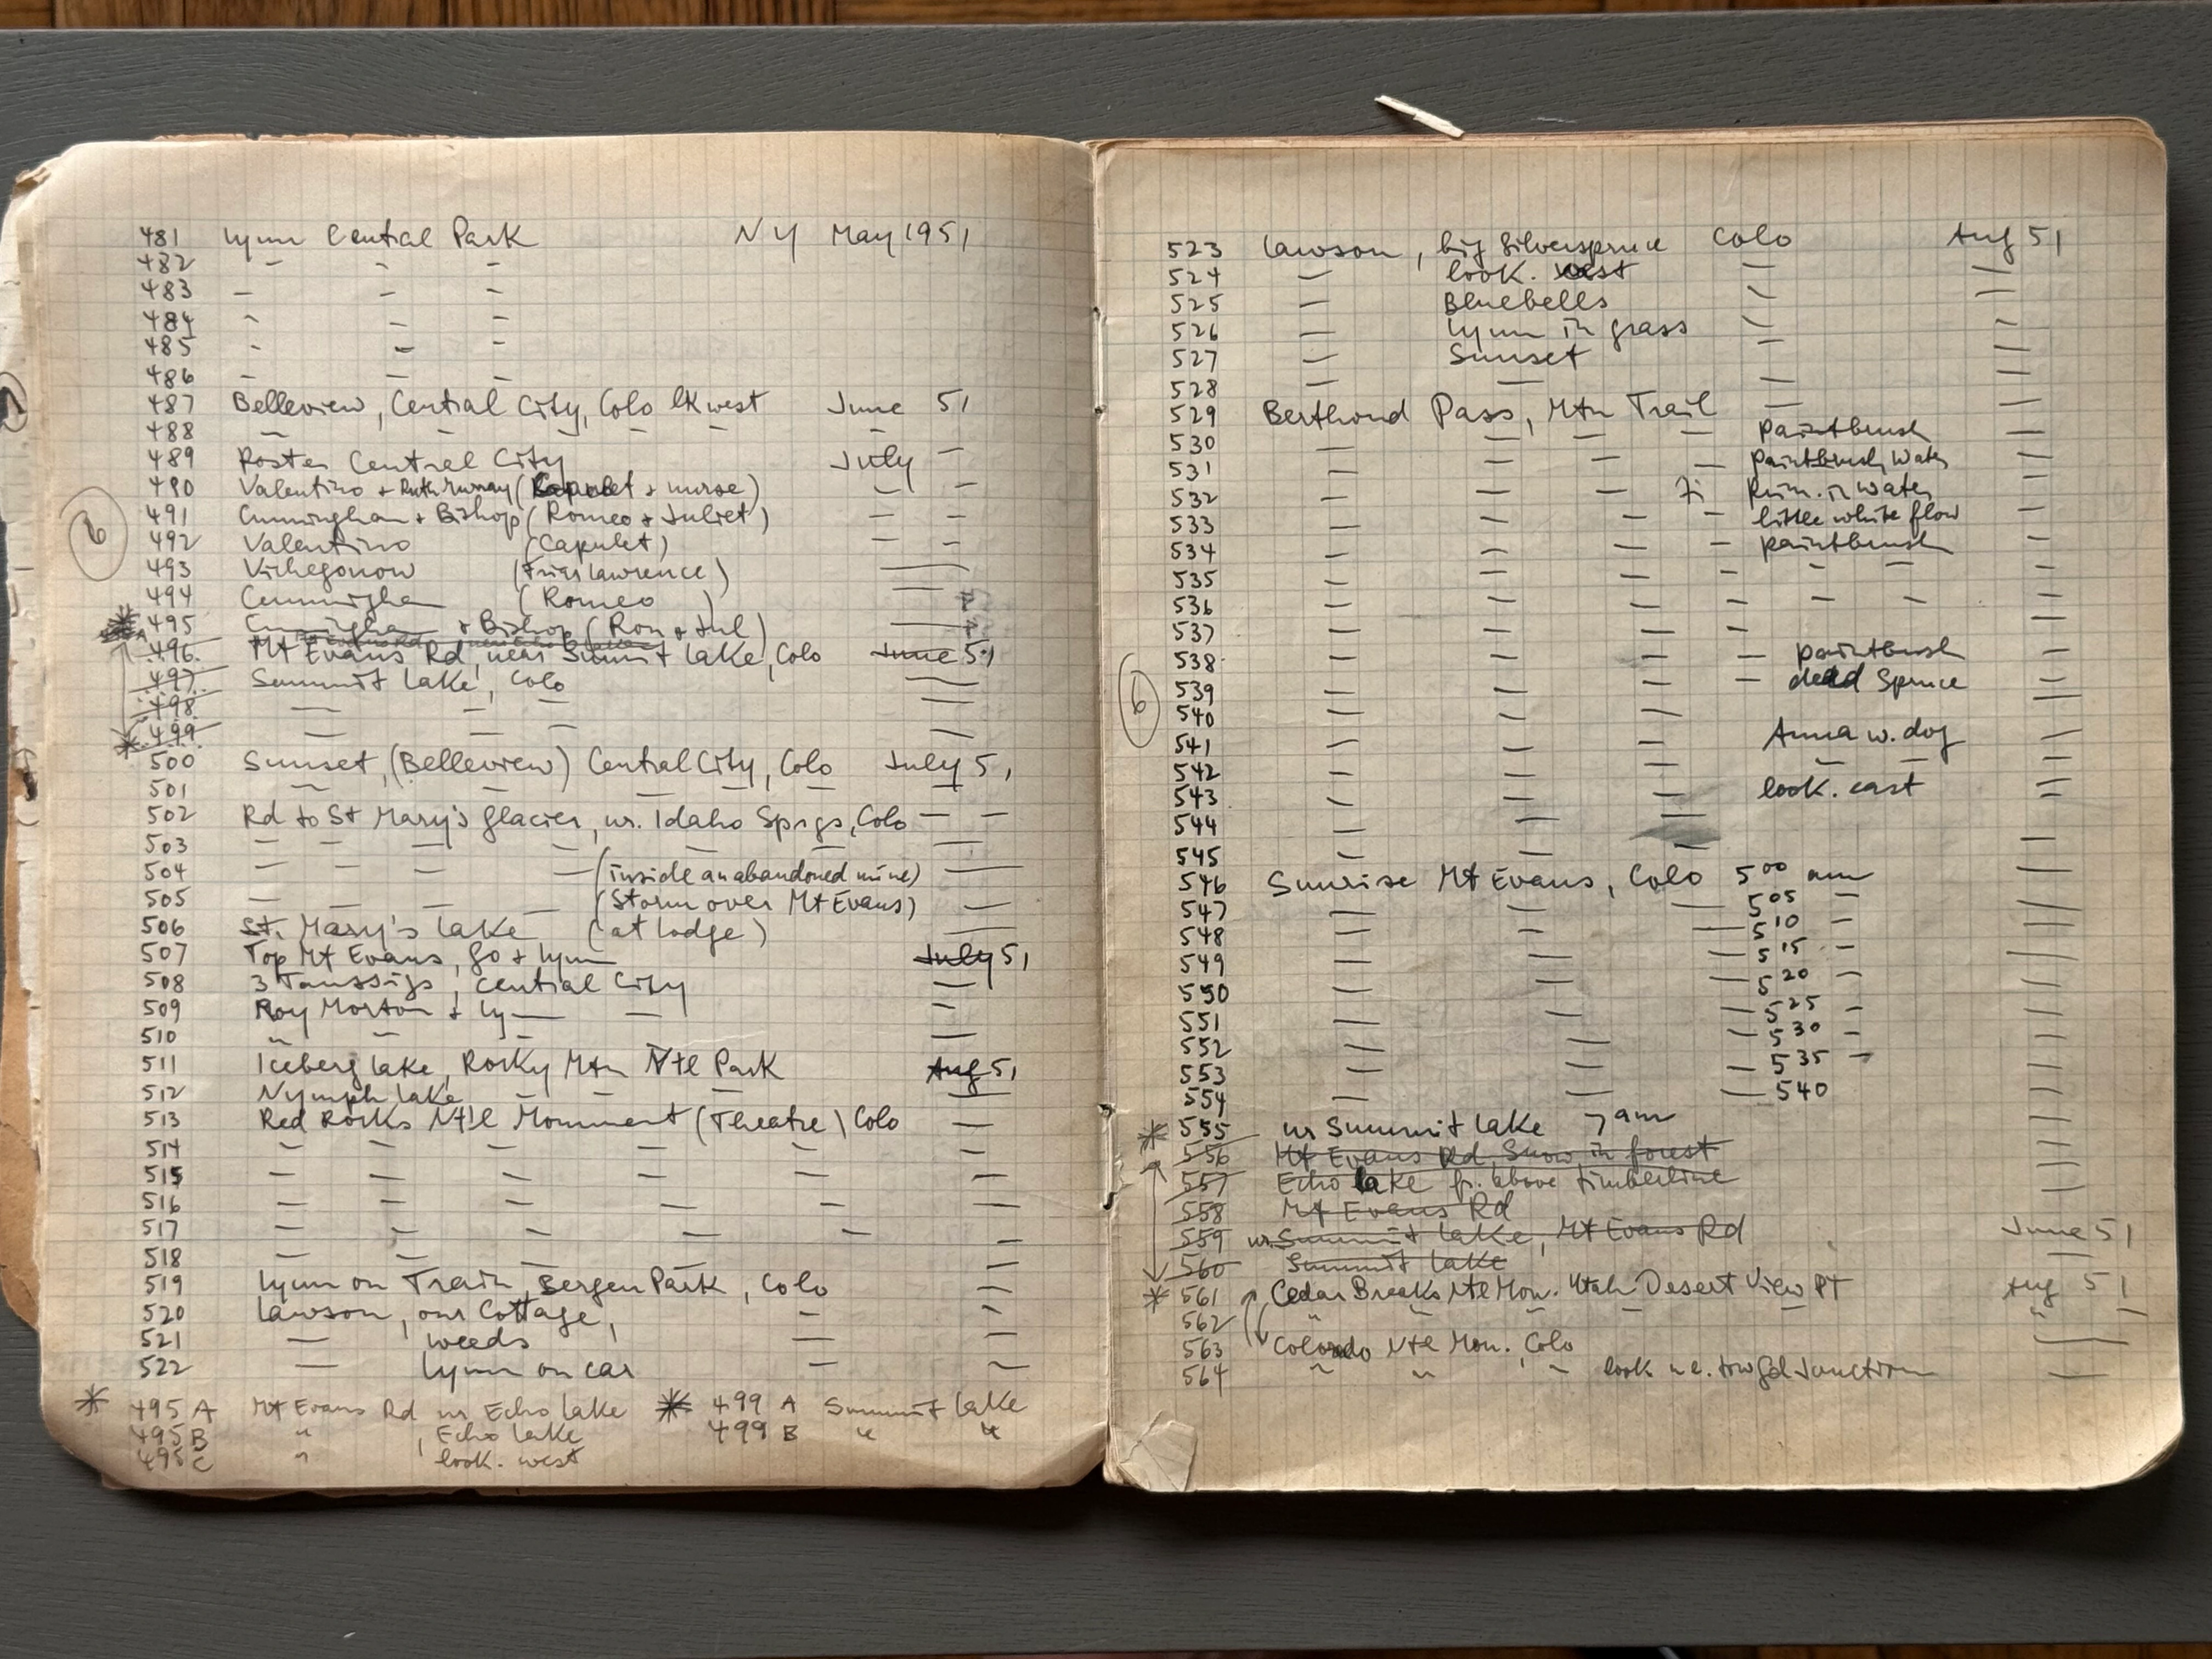 481 Lynn Central Park NY May 1951
482 - - -
483 - - -
484 - - -
485 - - -
486 - - -
487 Belleview, Central City, Colo lk west June 51
488 - - - - - -
489 Poster Central City July -
490 Valentino + Ruth Murray (Capulet + nurse) - -
491 Cunningham + Bishop (Romeo + Juliet) - -
492 Valentino (Capulet) - -
493 (Friar Lawrence) —
494 Cunningham (Romeo) —
495 Cunningham + Bishop (Rom + Jul) —
496 Mt Evans Rd, near Summit Lake, Colo June 51
497 Summit Lake, Colo —
498 — - — —
499 — — — —
500 Sunset, (Belleview) Central City, Colo July 51
501 - - - - - -
502 Rd to St Mary's Glacier, nr. Idaho Spgs, Colo - -
503 - - - - - - —
504 - - - - (inside an abandoned mine) —
505 - - - - (Storm over Mt Evans) —
506 St. Mary's Lake (at lodge) —
507 Top Mt Evans, Go + Lynn July 51
508 3 Taussigs, Central City —
509 Roy Morton + Ly— — -
510 " - - —
511 Iceberg Lake, Rocky Mtn Ntl Park Aug 51
512 Nymph Lake - - - —
513 Red Rocks Nt'l Monument (Theatre) Colo —
514 - - - - - -
515 - - - - - -
516 - - - - - -
517 - - - - - -
518 - - - - - -
519 Lynn on Train, Bergen Park, Colo -
520 Lawson, our Cottage, - -
521 — , weeds — -
522 — Lynn on car - -
* 495 A Mt Evans Rd nr Echo Lake * 499 A Summit Lake
495 B " , Echo Lake 499 B " "
495 C " look. west
6
523 Lawson, big Silverspruce Colo Aug 51
524 - look. west - -
525 - Bluebells - -
526 - Lynn in grass - -
527 - Sunset - -
528 - - - -
529 Berthoud Pass, Mtn Trail - -
530 - - - - paintbrush -
531 - - - - paintbrush, water -
532 - - - in water -
533 - - - - little white flow -
534 - - - - paintbrush -
535 - - - - - - - -
536 - - - - - - - -
537 - - - - -
538 - - - - paintbrush -
539 - - - - dead Spruce -
540 - - - -
541 - - - Anna w. dog -
542 - - - - - -
543 - - - look. east -
544 - - -
545 - - - -
546 Sunrise Mt Evans, Colo 5 00 am —
547 — - — 5 05 - -
548 — - — 5 10 - —
549 — - — 5 15 - —
550 — - — 5 20 - —
551 — - — 5 25 - —
552 — - — 5 30 - —
553 — - — 5 35 - —
554 — - — 5 40 —
* 555 nr Summit Lake 7 am -
556 Mt Evans Rd Snow in forest -
557 Echo Lake fr. above timberline -
558 Mt Evans Rd
559 nr. Summit Lake, Mt Evans Rd June 51
560 Summit Lake —
* 561 Cedar Breaks Ntl Mon. Utah Desert View Pt Aug 51
562 " " " - - " -
563 Colorado Ntl Mon. Colo —
564 " " " look n e. tow Gd Junction —
6